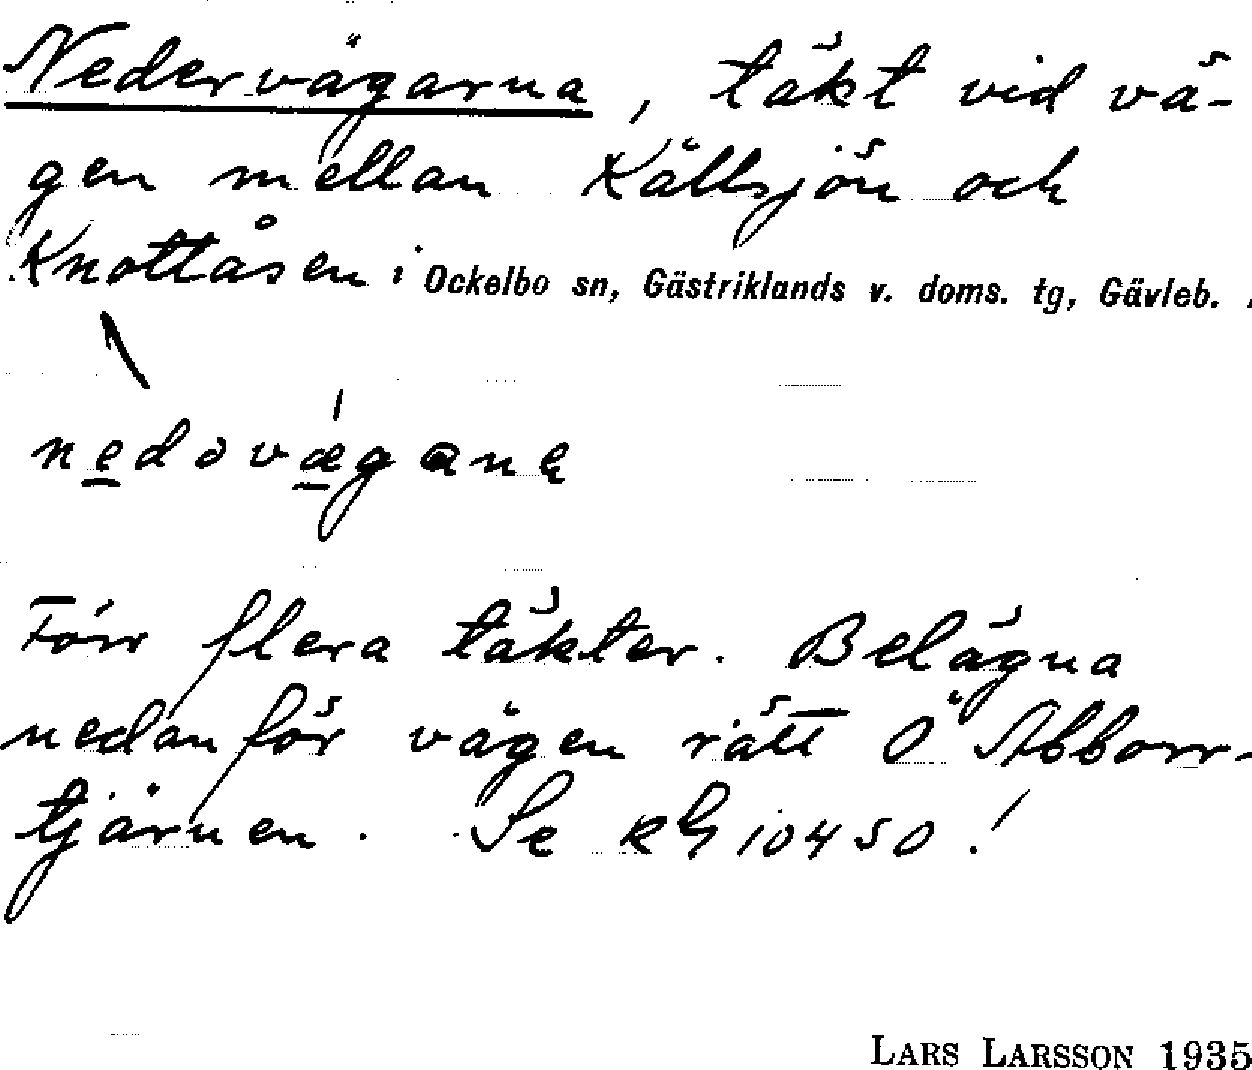 Nedervägarna, täkt vid vä-
gen mellan Källsjön och
Knottåsen i Ockelbo sn, Gästriklands v. doms. tg, Gävleb.
Förr flera täkter. Belägna
nedanför vägen rätt Ö Abborr-
tjärnen. Se RG 10450!
LARS LARSSON 1935